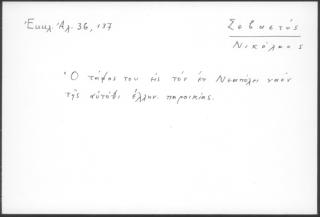 Ἐκκλ. Ἀλ. 36, 137
Σεβαστός
Νικόλαος
Ὁ τάφος του εἰς τόν ἐν Νεαπόλει ναόν
τῆς αὐτόθι ἑλλην. παροικίας.